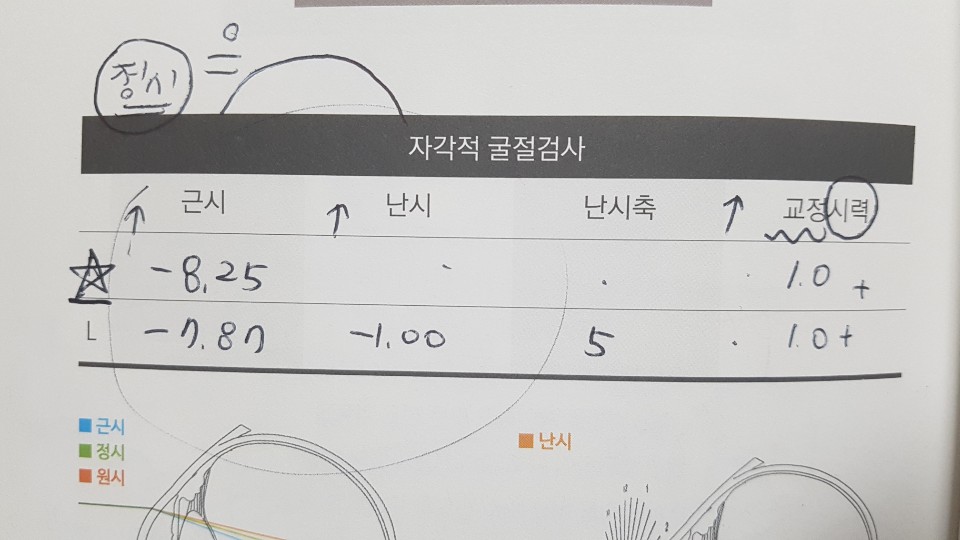 정시 = 0
자각적 굴절검사
근시 난시 난시축 교정시력
-8.25 1.0 +
L -7.87 -1.00 5 1.0 +
근시
정시
원시
난시